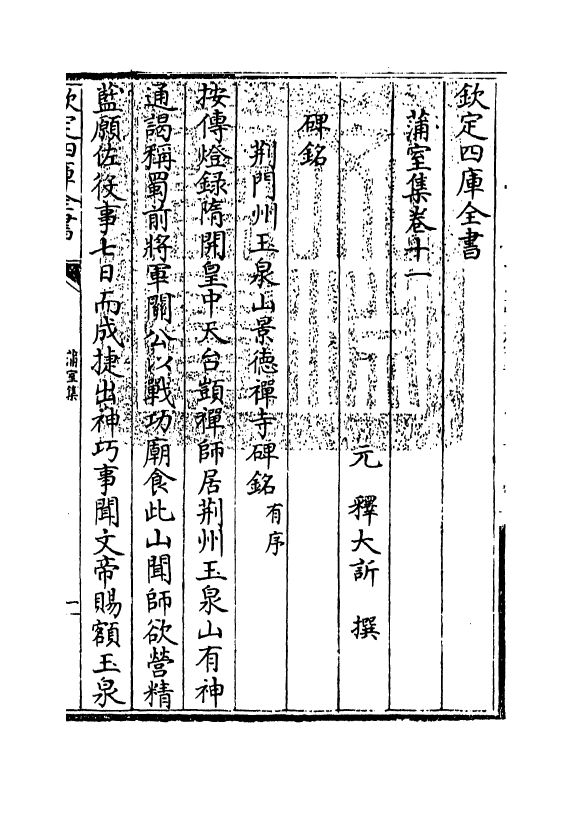 欽定四庫全書
蒲室集卷十一
元 釋大訢 撰
碑銘
荆門州玉泉山景德禪寺碑銘有序
按傳燈錄隋開皇中天台顗禪師居荆州玉泉山有神
通謁稱蜀前將軍關公以戰功廟食此山聞師欲營精
藍願佐役事七日而成捷出神巧事聞文帝賜額玉泉
欽定四庫全書
蒲室集
一